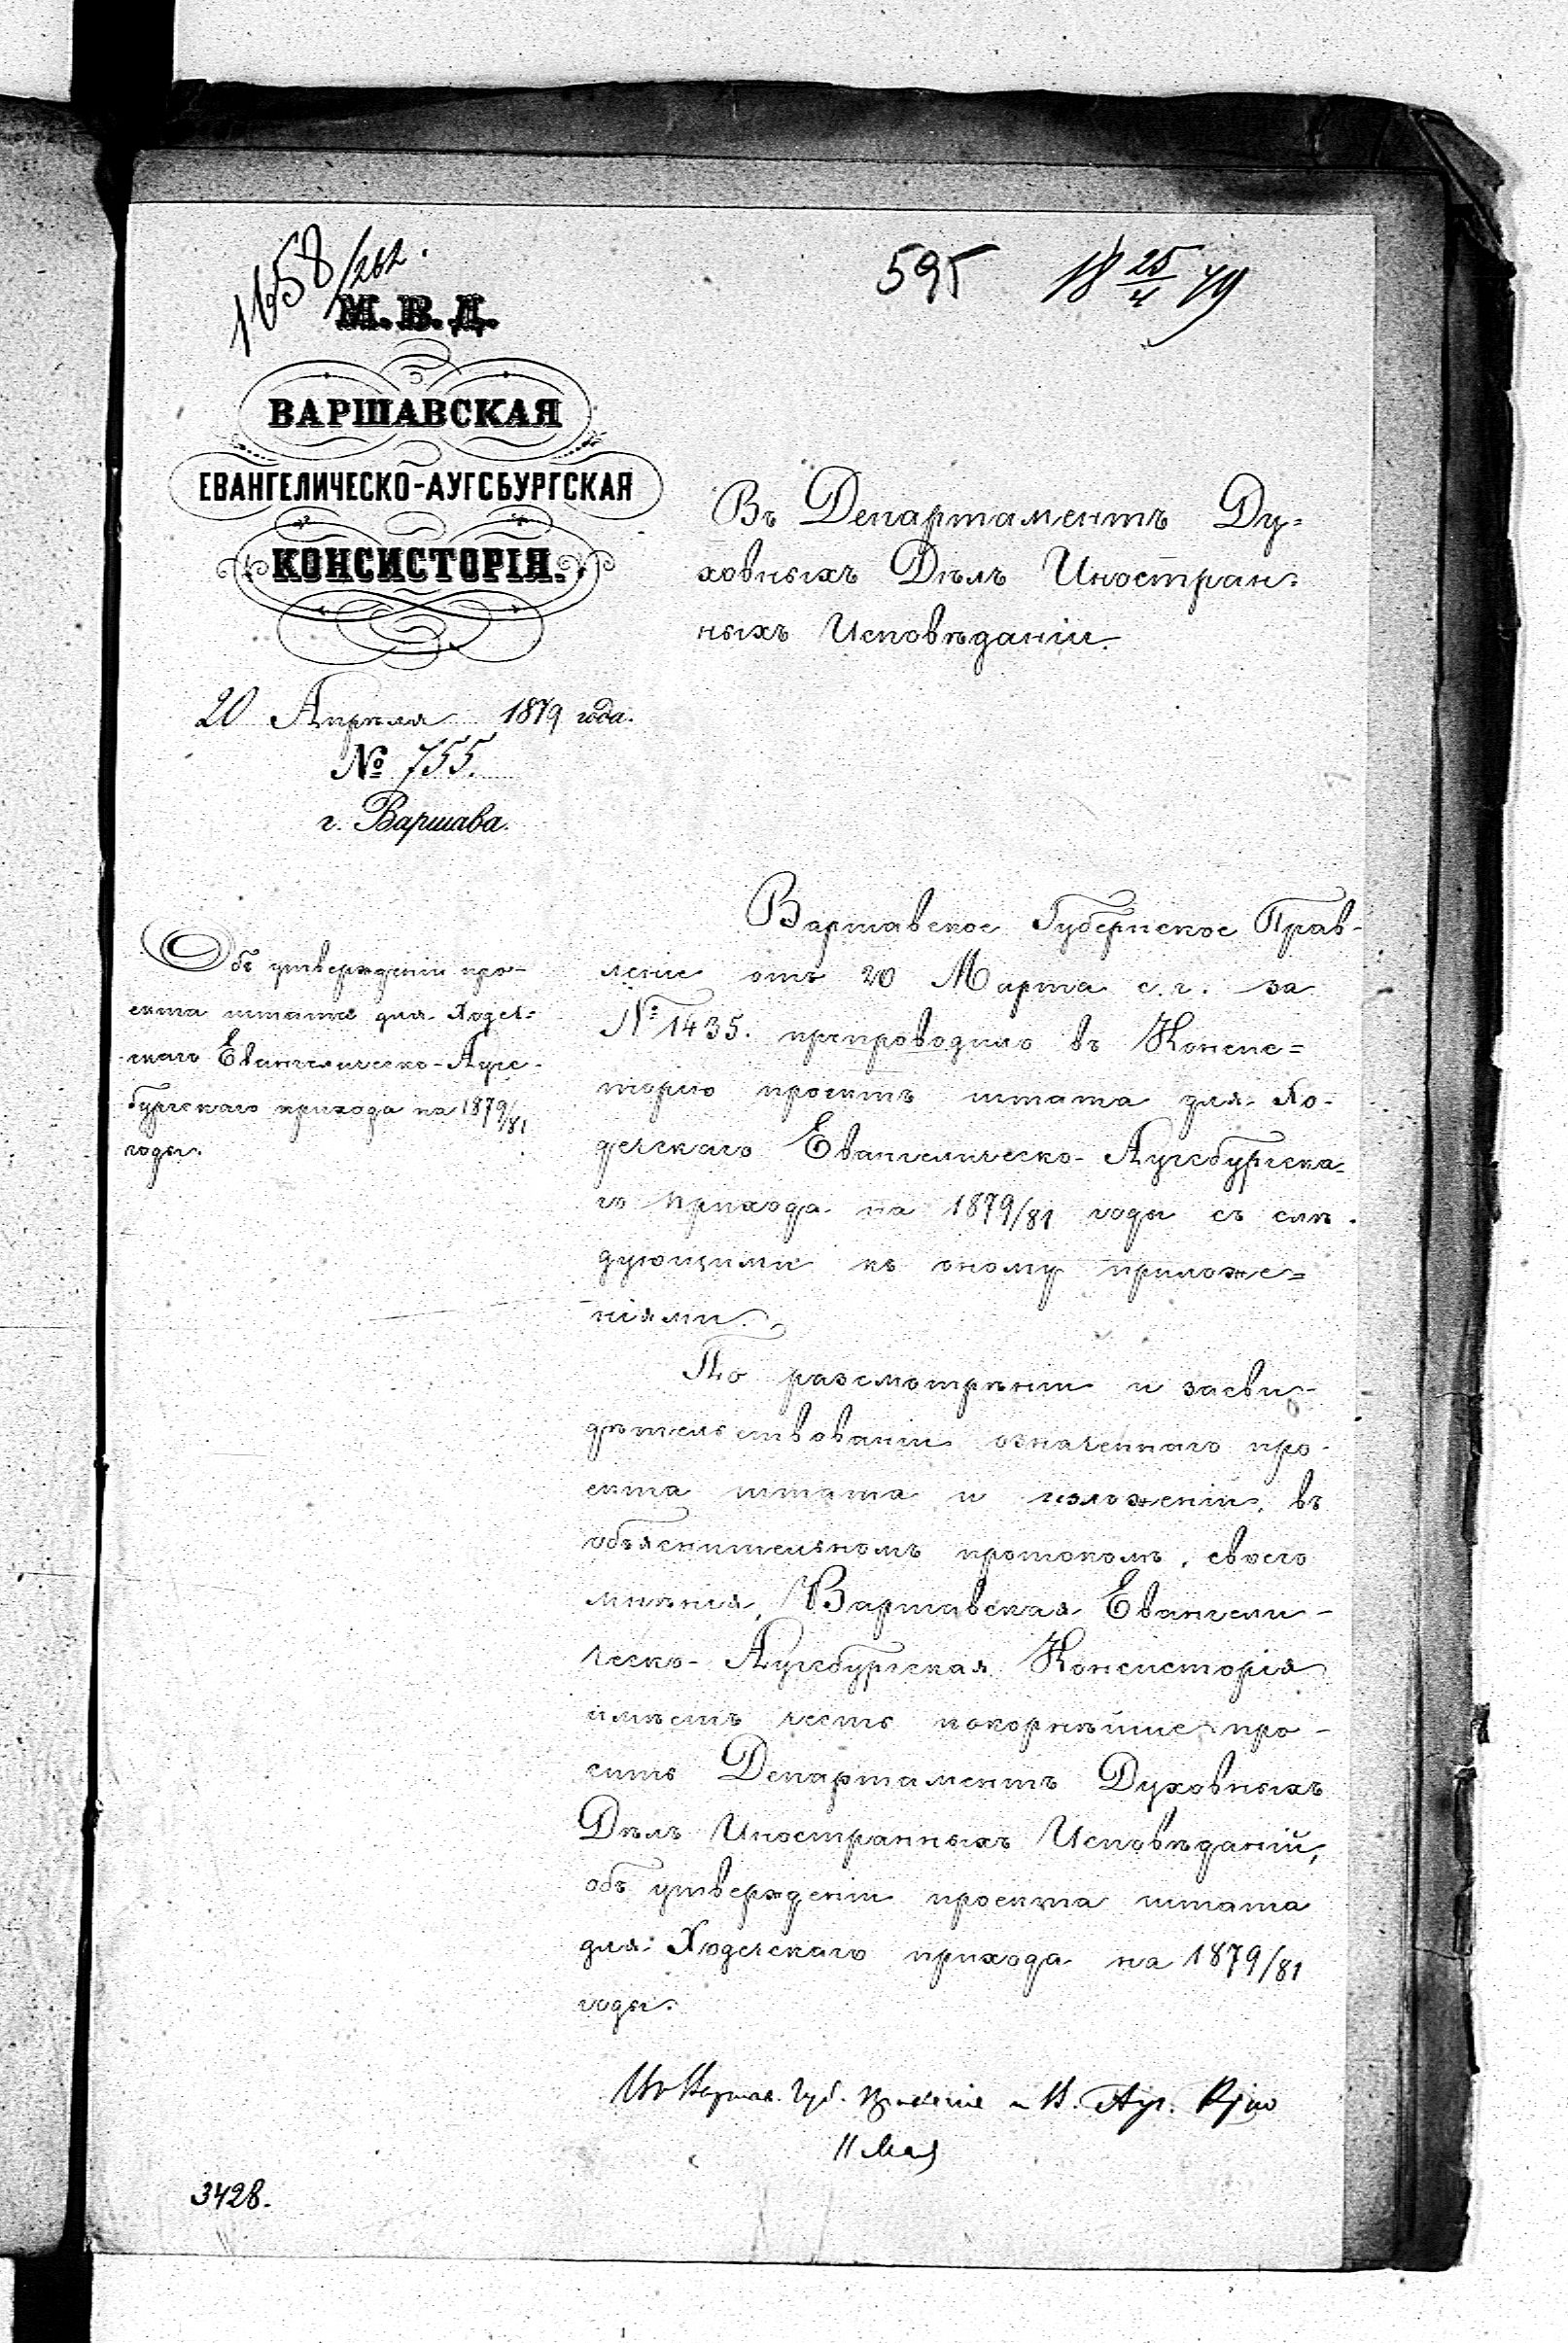 1658/262.
595 18 25/4 79
М. В. Д.
ВАРШАВСКАЯ
ЕВАНГЕЛИЧЕСКО-АУГСБУРГСКАЯ
КОНСИСТОРІЯ.
20 Апрѣля 1879 года.
№ 755.
г. Варшава.
Въ Департаментъ Ду=
ховныхъ Дѣлъ Иностран=
ныхъ Исповѣданіи.
Объ утвержденіи про-
екта штата для Ходеч=
скаго Евангелическо-Аугс-
бургскаго прихода на 1879/81
годы.
Варшавское Губернское Прав-
леніе отъ 20 Марта с. г. за
№ 1435. препроводило въ Консис=
торію проектъ штата для Хо-
дечскаго Евангелическо-Аугсбургска-
го прихода на 1879/81 годы съ слѣ-
дующими къ оному приложе=
ніями.
По разсмотрѣніи и засви-
дѣтельствованіи означеннаго про-
екта штата и изложеніи, въ
объяснительномъ протоколѣ, своего
мнѣнія, Варшавская Евангели-
ческо-Аугсбургская Консисторія
имѣетъ честь покорнѣйше про-
сить Департаментъ Духовныхъ
Дѣлъ Иностранныхъ Исповѣданій,
объ утвержденіи проекта штата
для Ходечскаго прихода на 1879/81
годы.
Губ. Правленіе и
11 Мая
3428.